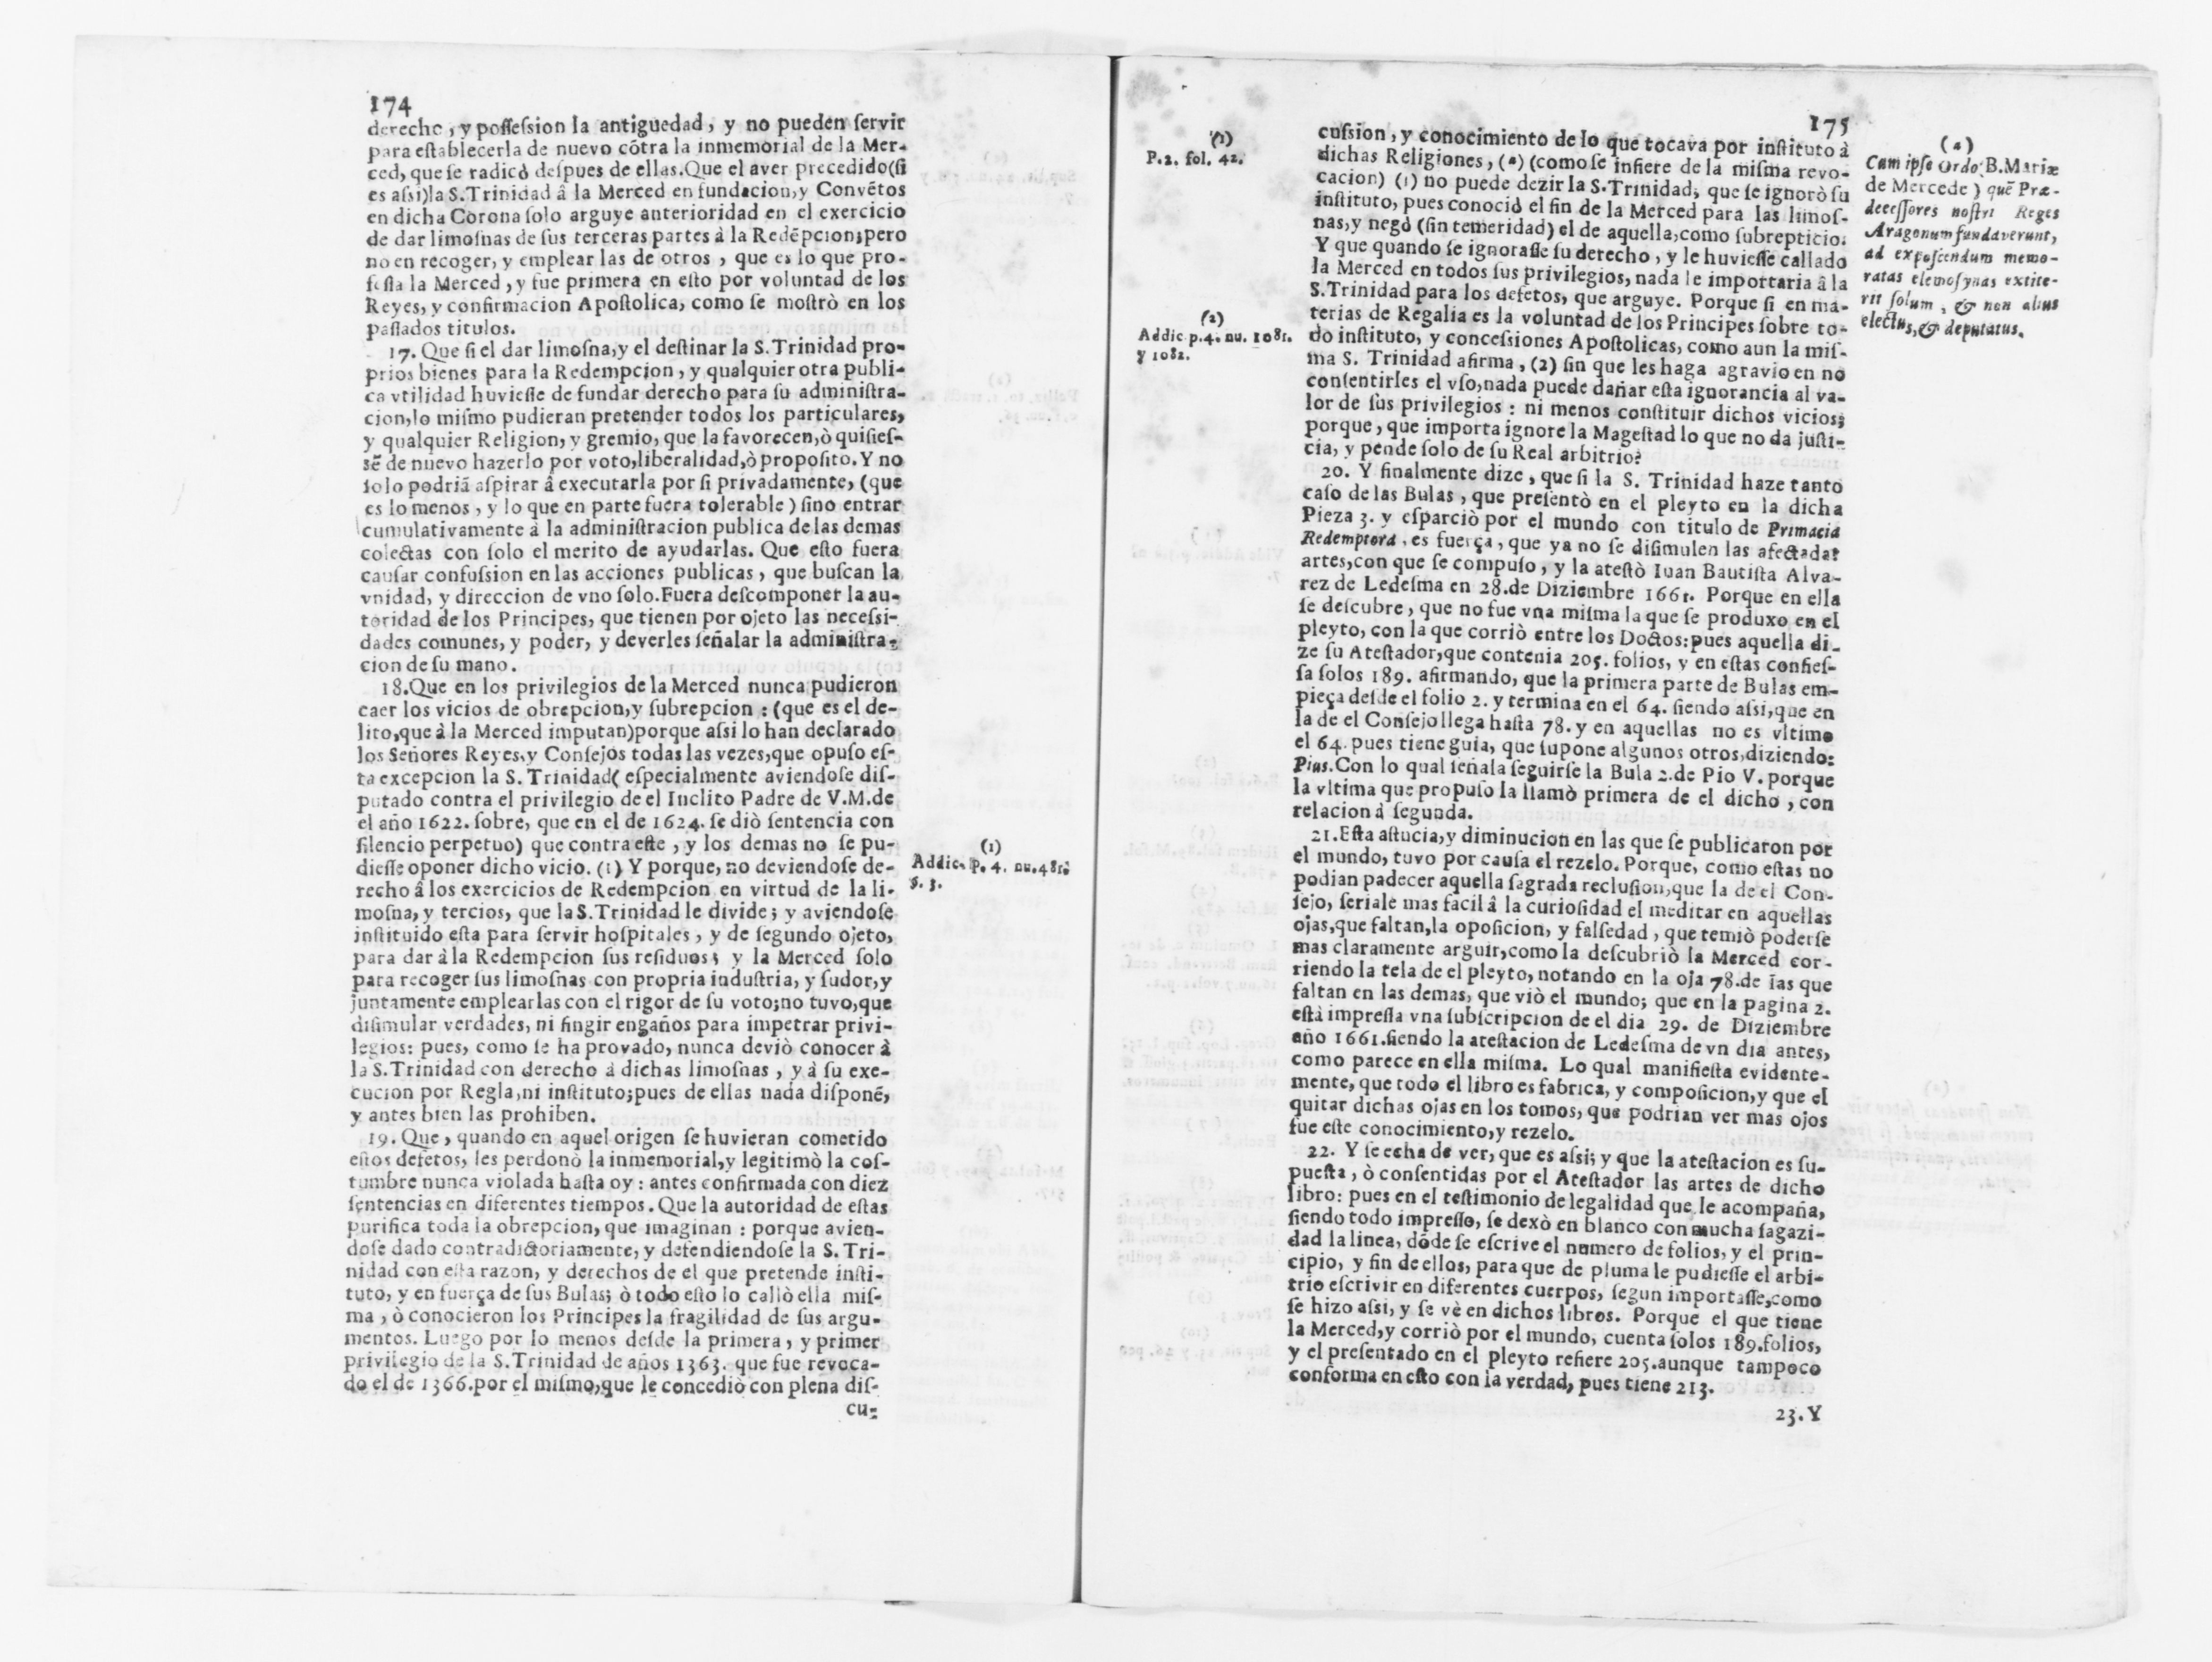 174
derecho, y poſſeſsion la antiguedad, y no pueden ſervir
para eſtablecerla de nuevo cõtra la inmemorial de la Mer-
ced, que ſe radicò deſpues de ellas. Que el aver precedido (ſi
es aſsi) la S. Trinidad â la Merced en fundacion, y Convẽtos
en dicha Corona ſolo arguye anterioridad en el exercicio
de dar limoſnas de ſus terceras partes à la Redẽpcion; pero
no en recoger, y emplear las de otros, que es lo que pro-
feſſa la Merced, y fue primera en eſto por voluntad de los
Reyes, y confirmacion Apoſtolica, como ſe moſtrò en los
paſſados titulos.
17. Que ſi el dar limoſna, y el deſtinar la S. Trinidad pro-
prios bienes para la Redempcion, y qualquier otra publi-
ca vtilidad huvieſſe de fundar derecho para ſu adminiſtra-
cion, lo miſmo pudieran pretender todos los particulares,
y qualquier Religion, y gremio, que la favorecen, ò quiſieſ-
sẽ de nuevo hazerlo por voto, liberalidad, ò propoſito. Y no
ſolo podriã aſpirar â executarla por ſi privadamente, (que
es lo menos, y lo que en parte fuera tolerable) ſino entrar
cumulativamente à la adminiſtracion publica de las demas
colectas con ſolo el merito de ayudarlas. Que eſto fuera
cauſar confuſsion en las acciones publicas, que buſcan la
vnidad, y direccion de vno ſolo. Fuera deſcomponer la au-
toridad de los Principes, que tienen por ojeto las neceſsi-
dades comunes, y poder, y deverles ſeñalar la adminiſtra-
cion de ſu mano.
18. Que en los privilegios de la Merced nunca pudieron
caer los vicios de obrepcion, y ſubrepcion: (que es el de-
lito, que à la Merced imputan) porque aſsi lo han declarado
los Señores Reyes, y Conſejos todas las vezes, que opuſo eſ-
ta excepcion la S. Trinidad (eſpecialmente aviendoſe diſ-
putado contra el privilegio de el Inclito Padre de V.M. de
el año 1622. ſobre, que en el de 1624. ſe diò ſentencia con
ſilencio perpetuo) que contra eſte, y los demas no ſe pu-
dieſſe oponer dicho vicio. (1) Y porque, no deviendoſe de-
recho â los exercicios de Redempcion en virtud de la li-
moſna, y tercios, que la S. Trinidad le divide; y aviendoſe
inſtituido eſta para ſervir hoſpitales, y de ſegundo ojeto,
para dar à la Redempcion ſus reſiduos; y la Merced ſolo
para recoger ſus limoſnas con propria induſtria, y ſudor, y
juntamente emplearlas con el rigor de ſu voto; no tuvo, que
diſimular verdades, ni fingir engaños para impetrar privi-
legios: pues, como ſe ha provado, nunca deviò conocer à
la S. Trinidad con derecho à dichas limoſnas, y à ſu exe-
cucion por Regla, ni inſtituto; pues de ellas nada diſponẽ,
y antes bien las prohiben.
19. Que, quando en aquel origen ſe huvieran cometido
eſtos defetos, les perdonò la inmemorial, y legitimò la coſ-
tumbre nunca violada haſta oy: antes confirmada con diez
ſentencias en diferentes tiempos. Que la autoridad de eſtas
purifica toda la obrepcion, que imaginan: porque avien-
doſe dado contradictoriamente, y defendiendoſe la S. Tri-
nidad con eſta razon, y derechos de el que pretende inſti-
tuto, y en fuerça de ſus Bulas; ò todo eſto lo callò ella miſ-
ma, ò conocieron los Principes la fragilidad de ſus argu-
mentos. Luego por lo menos deſde la primera, y primer
privilegio de la S. Trinidad de años 1363. que fue revoca-
do el de 1366. por el miſmo, que le concediò con plena diſ-
cu-
(1)
Addic. p. 4. nu. 481.
§. 3.
175
cuſsion, y conocimiento de lo que tocava por inſtituto à
dichas Religiones, (a) (como ſe infiere de la miſma revo-
cacion) (1) no puede dezir la S. Trinidad, que ſe ignorò ſu
inſtituto, pues conociò el fin de la Merced para las limoſ-
nas, y negò (ſin temeridad) el de aquella, como ſubrepticio.
Y que quando ſe ignoraſſe ſu derecho, y le huvieſſe callado
la Merced en todos ſus privilegios, nada le importaria â la
S. Trinidad para los defetos, que arguye. Porque ſi en ma-
terias de Regalia es la voluntad de los Principes ſobre to-
do inſtituto, y conceſsiones Apoſtolicas, como aun la miſ-
ma S. Trinidad afirma, (2) ſin que les haga agravio en no
conſentirles el vſo, nada puede dañar eſta ignorancia al va-
lor de ſus privilegios: ni menos conſtituir dichos vicios;
porque, que importa ignore la Mageſtad lo que no da juſti-
cia, y pende ſolo de ſu Real arbitrio?
20. Y finalmente dize, que ſi la S. Trinidad haze tanto
caſo de las Bulas, que preſentò en el pleyto en la dicha
Pieza 3. y eſparciò por el mundo con titulo de Primacia
Redemptora, es fuerça, que ya no ſe diſimulen las afectadas
artes, con que ſe compuſo, y la ateſtò Iuan Bautiſta Alva-
rez de Ledeſma en 28. de Diziembre 1661. Porque en ella
ſe deſcubre, que no fue vna miſma la que ſe produxo en el
pleyto, con la que corriò entre los Doctos: pues aquella di-
ze ſu Ateſtador, que contenia 205. folios, y en eſtas confieſ-
ſa ſolos 189. afirmando, que la primera parte de Bulas em-
pieça deſde el folio 2. y termina en el 64. ſiendo aſsi, que en
la de el Conſejo llega haſta 78. y en aquellas no es vltimo
el 64. pues tiene guia, que ſupone algunos otros, diziendo:
Pius. Con lo qual ſeñala ſeguirſe la Bula 2. de Pio V. porque
la vltima que propuſo la llamò primera de el dicho, con
relacion à ſegunda.
21. Eſta aſtucia, y diminucion en las que ſe publicaron por
el mundo, tuvo por cauſa el rezelo. Porque, como eſtas no
podian padecer aquella ſagrada recluſion, que la de el Con-
ſejo, ſeriale mas facil â la curioſidad el meditar en aquellas
ojas, que faltan, la opoſicion, y falſedad, que temiò poderſe
mas claramente arguir, como la deſcubriò la Merced cor-
riendo la tela de el pleyto, notando en la oja 78. de las que
faltan en las demas, que viò el mundo; que en la pagina 2.
eſtà impreſſa vna ſubſcripcion de el dia 29. de Diziembre
año 1661. ſiendo la ateſtacion de Ledeſma de vn dia antes,
como parece en ella miſma. Lo qual manifieſta evidente-
mente, que todo el libro es fabrica, y compoſicion, y que el
quitar dichas ojas en los tomos, que podrian ver mas ojos
fue eſte conocimiento, y rezelo.
22. Y ſe echa de ver, que es aſsi; y que la ateſtacion es ſu-
pueſta, ò conſentidas por el Ateſtador las artes de dicho
libro: pues en el teſtimonio de legalidad que le acompaña,
ſiendo todo impreſſo, ſe dexò en blanco con mucha ſagazi-
dad la linea, dõde ſe eſcrive el numero de folios, y el prin-
cipio, y fin de ellos, para que de pluma le pudieſſe el arbi-
trio eſcrivir en diferentes cuerpos, ſegun importaſſe, como
ſe hizo aſsi, y ſe vè en dichos libros. Porque el que tiene
la Merced, y corriò por el mundo, cuenta ſolos 189. folios,
y el preſentado en el pleyto refiere 205. aunque tampoco
conforma en eſto con la verdad, pues tiene 213.
23. Y
(1)
P. 2. fol. 42.
(2)
Addic. p. 4. nu. 1081.
y 1082.
(a)
Cum ipſe Ordo (B. Mariæ
de Mercede) quẽ Præ-
deceſſores noſtri Reges
Aragonum fundaverunt,
ad expoſcendum memo-
ratas elemoſynas extite-
rit ſolum, & non alius
electus, & deputatus.